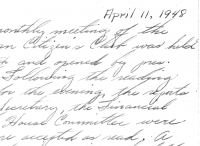 April 11, 1948
monthly meeting of the
an Citizen's Club was held
and opened by pres.
Following the reading
the evening, the reports
Secretary, the Financial
House Committee were
re accepted as read. A